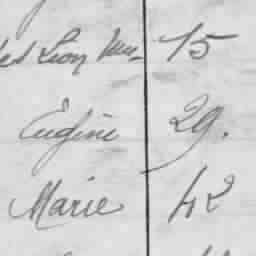 Léon 75
Eugéni 29.
Marie 42